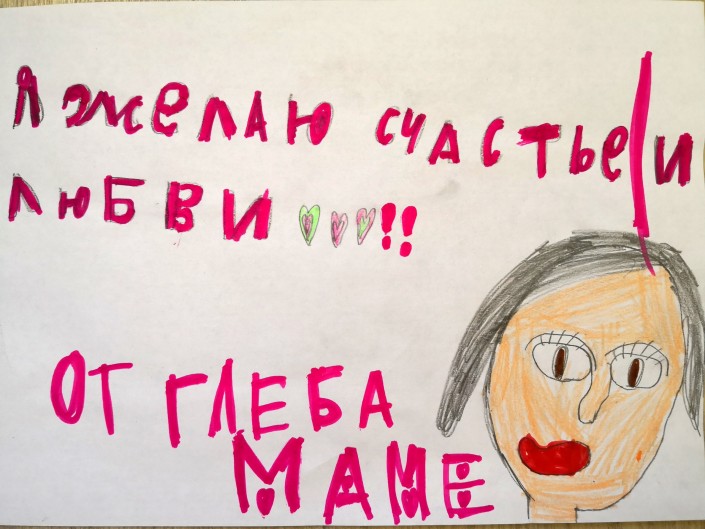 Я желаю счастье и
любви !!
ОТ ГЛЕБА
МАМЕ